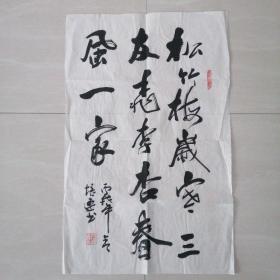 松竹梅歲寒三
友桃李杏春
風一家
丙戌年
書